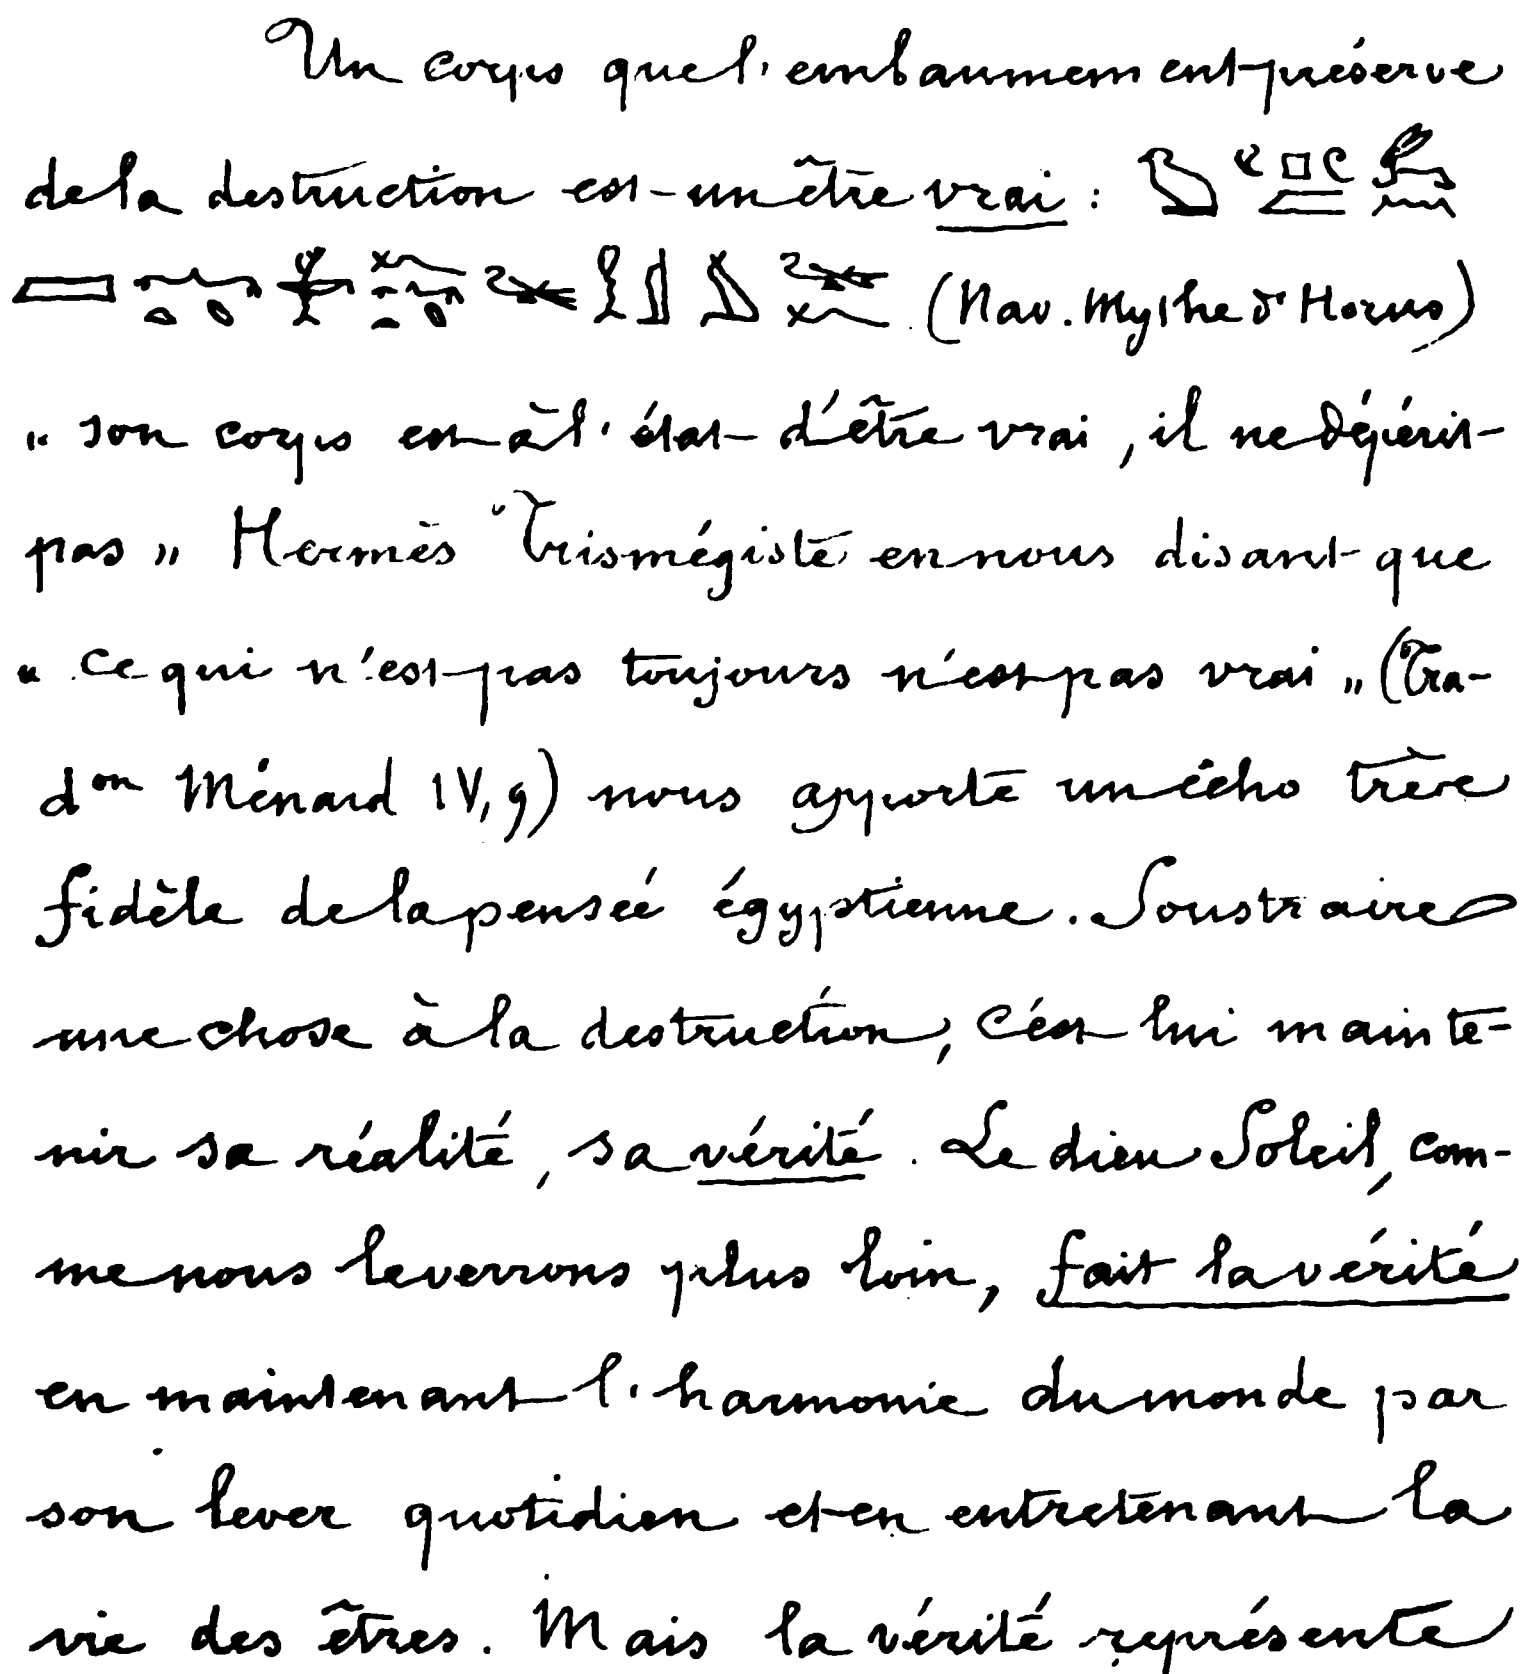 Un corps que l'embaumement préserve
de la destruction est un être vrai :
(Nav. Mythe d'Horus)
« son corps est à l'état d'être vrai, il ne dépérit
pas » Hermès Trismégiste en nous disant que
« ce qui n'est pas toujours n'est pas vrai » (Tra-
don Ménard IV, 9) nous apporte un écho très
fidèle de la pensée égyptienne. Soustraire
une chose à la destruction, c'est lui mainte-
nir sa réalité, sa vérité. Le dieu Soleil, com-
me nous le verrons plus loin, fait la vérité
en maintenant l'harmonie du monde par
son lever quotidien et en entretenant la
vie des êtres. Mais la vérité représente